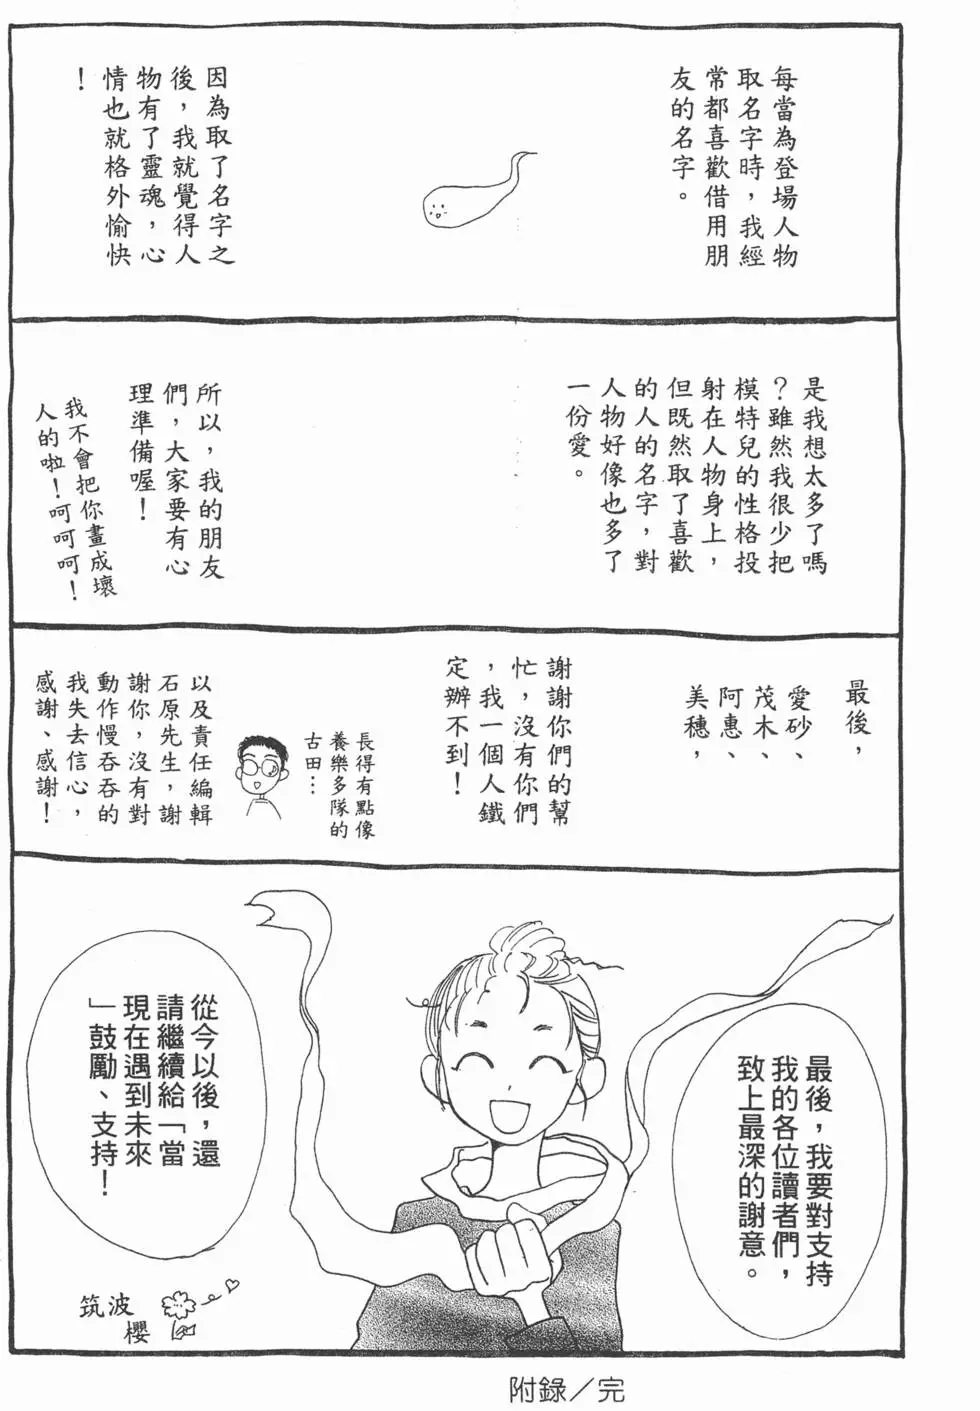 每當為登場人物
取名字時，我經
常都喜歡借用朋
友的名字。
因為取了名字之
後，我就覺得人
物有了靈魂，心
情也就格外愉快
！
是我想太多了嗎
？雖然我很少把
模特兒的性格投
射在人物身上，
但既然取了喜歡
的人的名字，對
人物好像也多了
一份愛。
所以，我的朋友
們，大家要有心
理準備喔！
我不會把你畫成壞
人的啦！呵呵呵！
最後，
愛砂、
茂木、
阿惠、
美穗，
謝謝你們的幫
忙，沒有你們
，我一個人鐵
定辦不到！
長得有點像
養樂多隊的
古田…
以及責任編輯
石原先生，謝
謝你，沒有對
動作慢吞吞的
我失去信心，
感謝、感謝！
最後，我要對支持
我的各位讀者們，
致上最深的謝意。
從今以後，還
請繼續給「當
現在遇到未來
」鼓勵、支持！
筑波
櫻
附錄／完